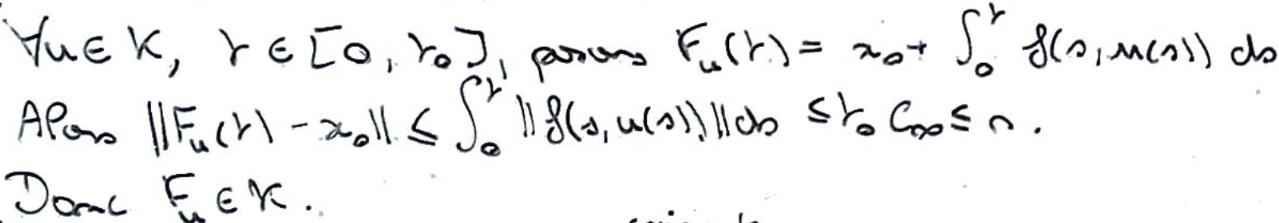 ∀u ∈ K, t ∈ [0, t₀], posons F_u(t) = x₀ + ∫₀ᵗ f(s, u(s)) ds
Alors ||F_u(t) - x₀|| ≤ ∫₀ᵗ ||f(s, u(s))|| ds ≤ t₀ C_∞ ≤ r.
Donc F_u ∈ K.